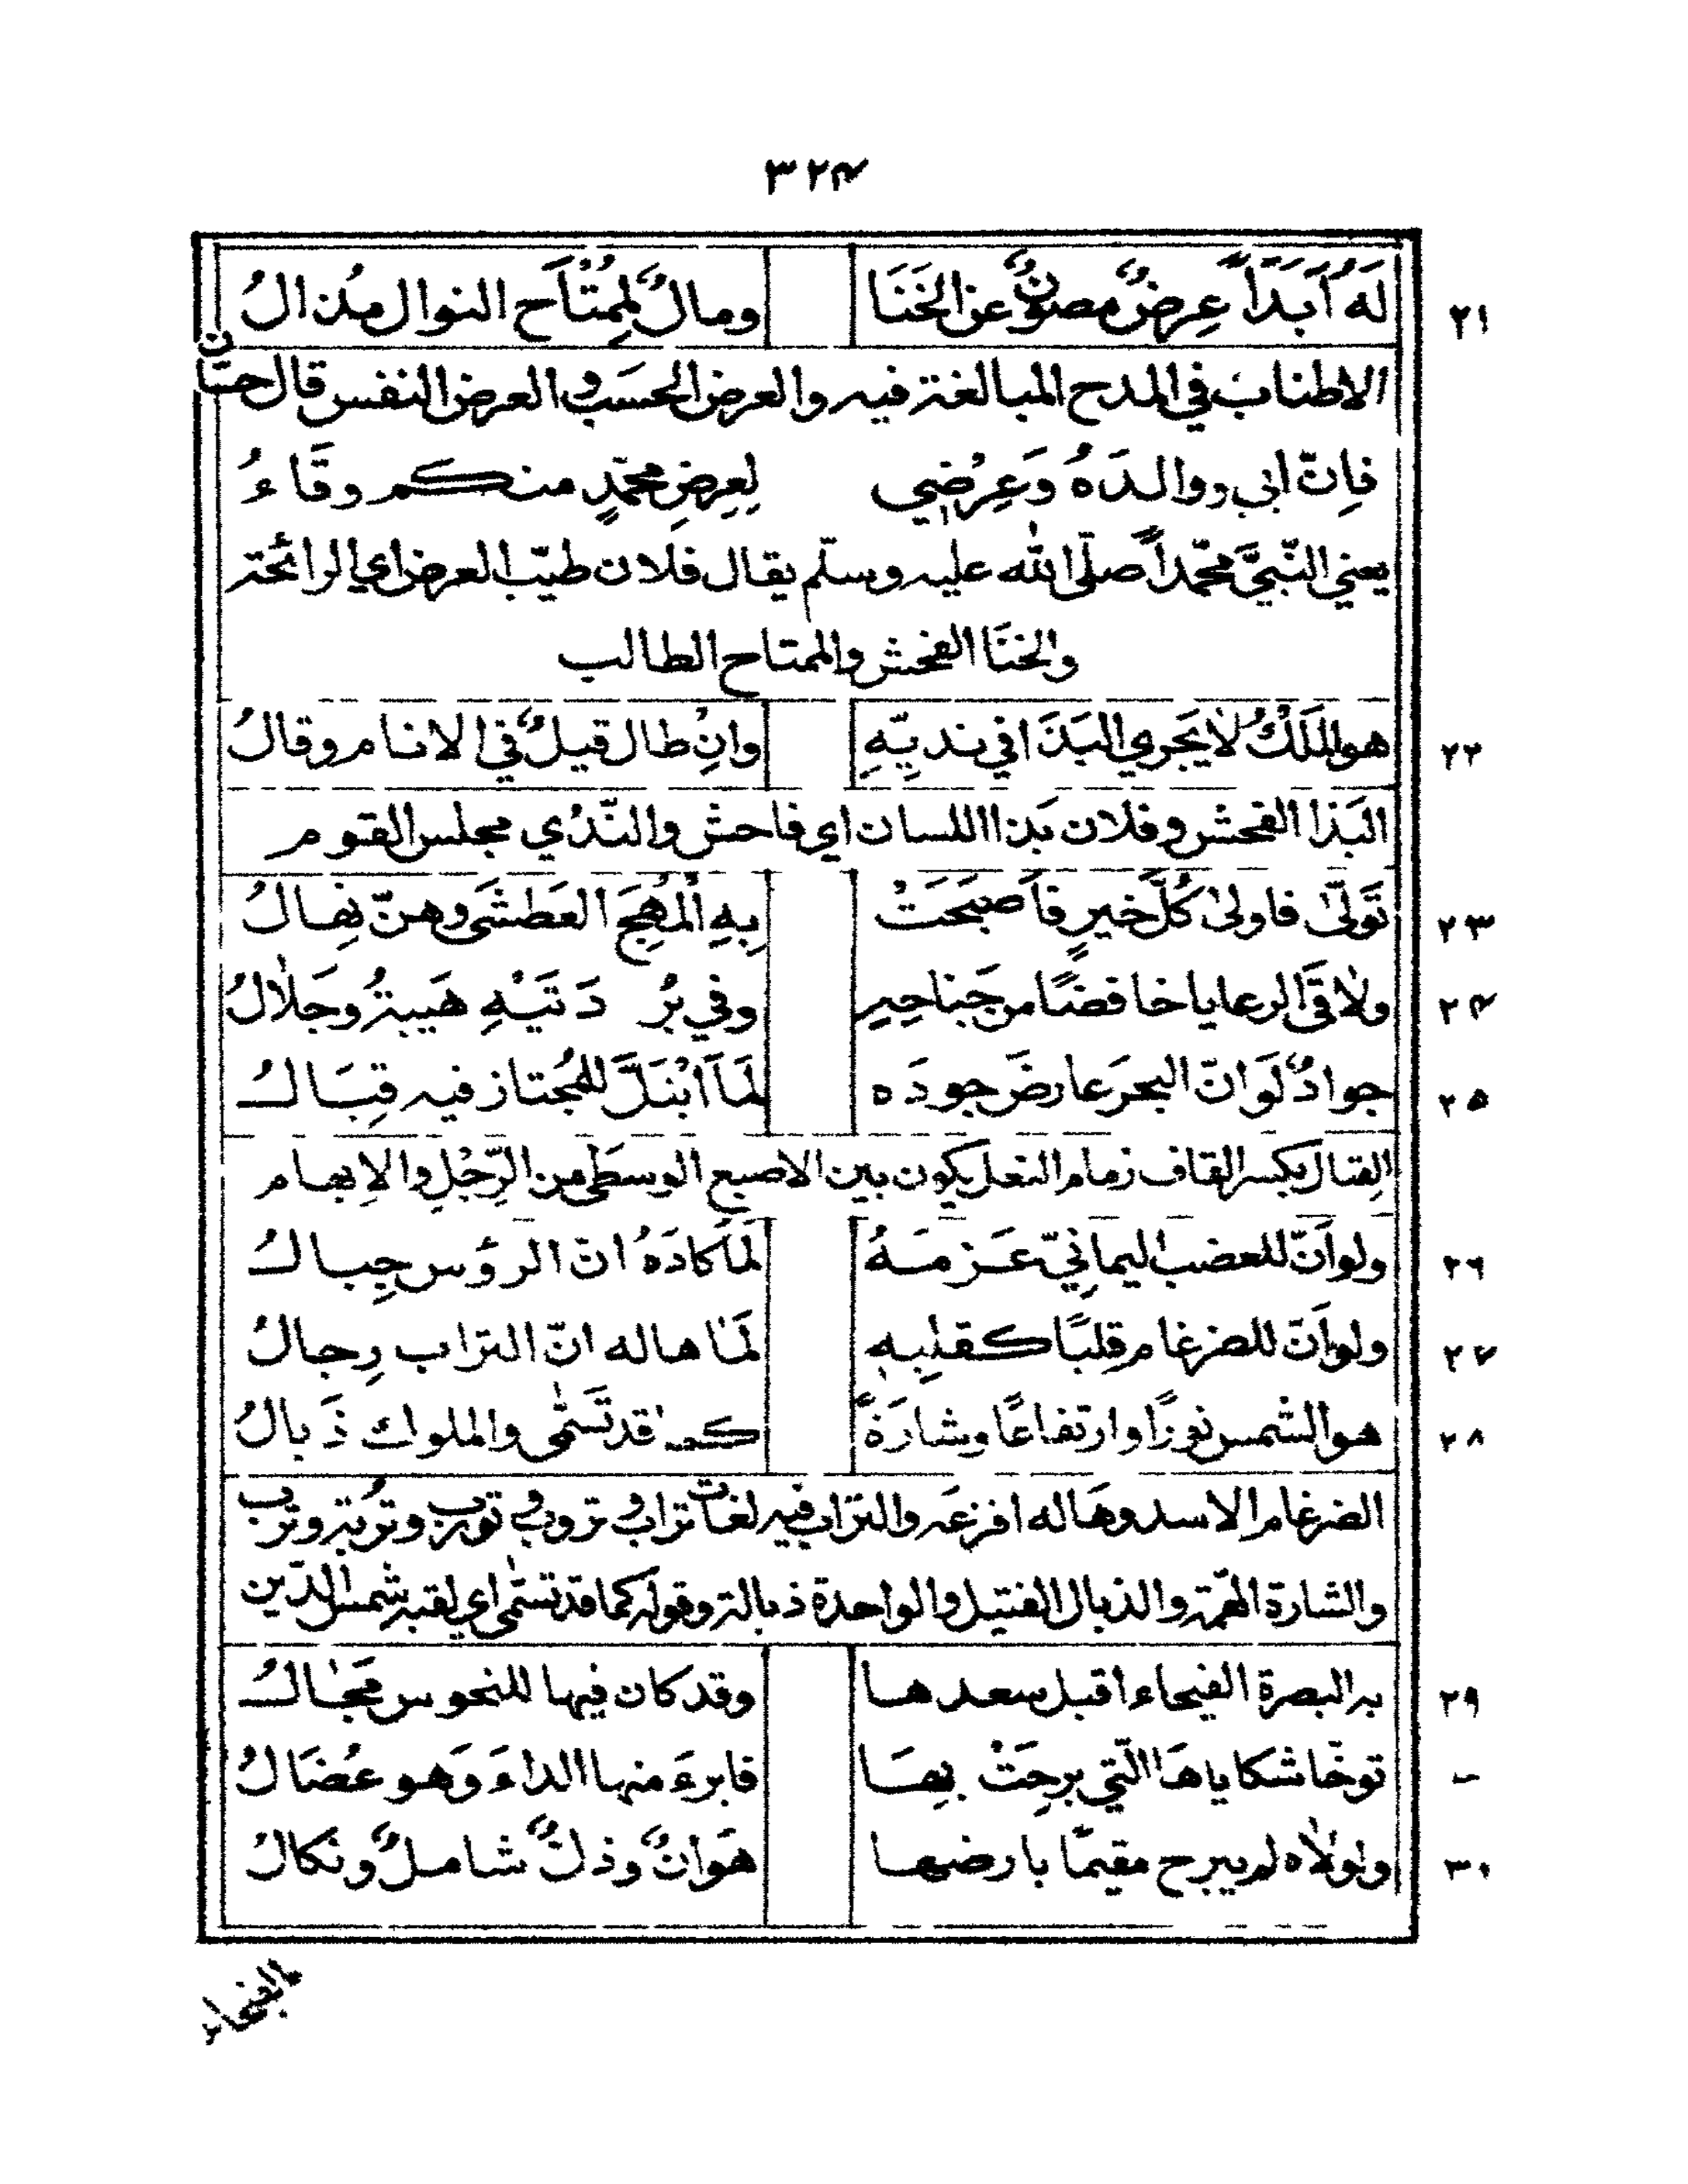 ٣٢٤
٢١ لَهُ أَبَدًا عِرضٌ مصونٌ عن الخَنَا ومالٌ لِمُمْتَاحِ النوال مُذالُ
الاطناب في المدح المبالغة فيه والعرض الحَسَب و العرض النفس قال حسّان
فاِنّ ابي ووالدَهُ وَعِرْضِي لِعِرضِ محمّدٍ منكم وقَاءُ
يعني النّبيَّ محمّداً صلّى الله عليه وسلّم يقال فلان طيّب العرض اي الرائحة
والخنَا الفحش والممتاح الطالب
٢٢ هو المَلْكُ لا يَجري البَذَا في نديِّهِ وانْ طال قيلٌ في الانام وقالُ
البَذا الفحش وفلان بَذا اللسان اي فاحش والنّدْي مجلس القوم
٢٣ تَوَلّىٰ فاولىٰ كُلَّ خيرٍ فأصبحَتْ بِهِ الْمُهَجُ العَطشَى وهنّ نِهالُ
٢٤ ولاقَى الرعايا خافضًا من جَناحِهِ وفي بُردَتَيْهِ هَيبةٌ وجَلالُ
٢٥ جوادٌ لَوَ انّ البحرَ عارضَ جودَه لَمَا ابْتَلَّ للمُجتاز فيه قِبَالُ
القِبال بكسر القاف زمام النعل يكون بين الاصبع الوسطَى من الرِّجْلِ والاِبهام
٢٦ ولو أَنّ للعضب اليمانِيّ عَزمَهُ لَمَا كادَهُ انّ الرؤس جِبالُ
٢٧ ولو أَنّ للضرغام قلبًا كقلبِهِ لَمَا هاله انّ التراب رِجالُ
٢٨ هو الشمس نورًا وارتفاعًا وشارَةً كما قد تَسَمَّى والملوك ذَبالُ
الضرغام الاسد وهَاله افزعَه والتراب فيه لغات تراب و تروب و تورب وتُربة وترب
والشارة الهمّة والذبال الفتيل والواحدة ذبالة وقوله كما قد تسمّى اي لقبه شمس الدّين
٢٩ به البصرة الفيحاء اقبل سعدها وقد كان فيها للنحوس مَجَالُ
توخّا شكاياهَا الّتي برحَتْ بِهَا فابرءَ منها الداءَ وَهو عُضَالُ
٣٠ ولولاه لم يبرح مقيمًا بارضها هَوَانٌ وذلٌّ شاملٌ ونَكالُ
الفيحاء